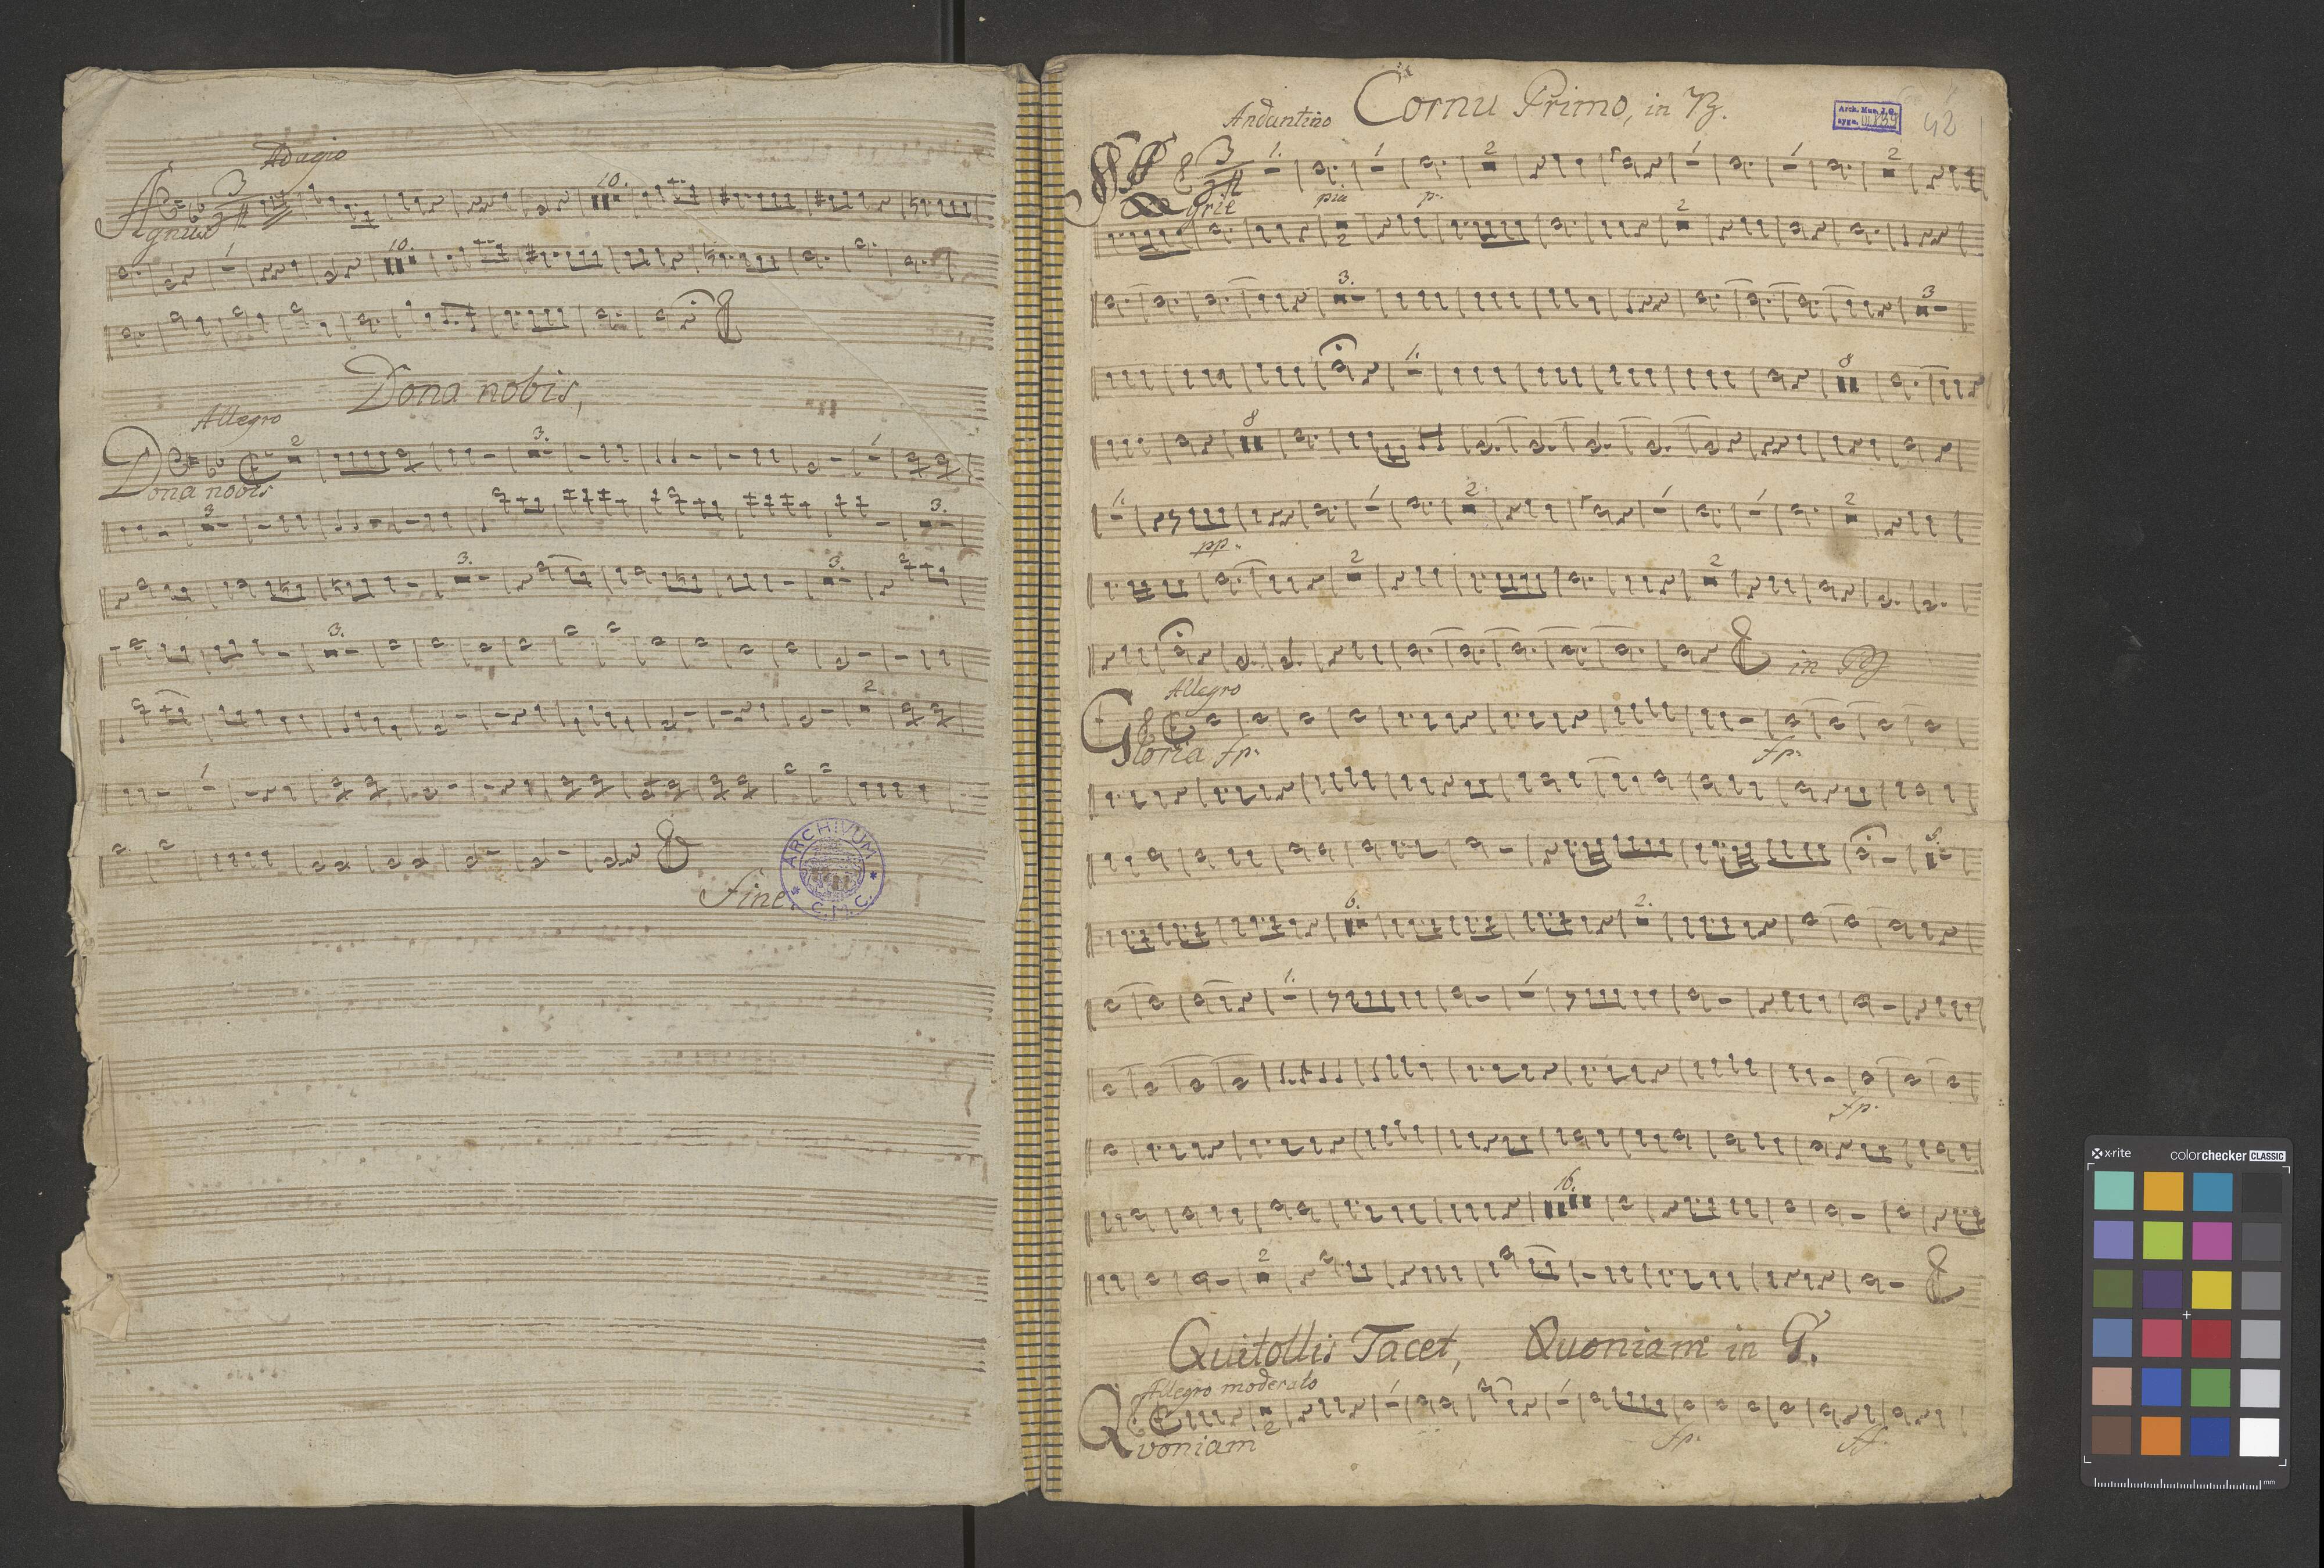 Adagio
3
10.
Agnus
1
10.
Dona nobis,
Allegro
2
3.
1
Dona nobis
3
3.
3.
3.
3.
2
1
Fine.
ARCHIVUM
C.M.C.
Cornu Primo, in B.
Andantino
Arch. Mus. J.G.
42
3
1.
1
2
1
1
2
Kyrie
pia
p.
2
2
3.
3
1.
8
8
1.
1
2
1
1
2
pp.
2
2
in B
Allegro
Gloria fp.
fp.
5.
6.
2.
1.
1
fp.
16.
2
Qui tollis Tacet, Quoniam in G.
Allegro moderato
1
1
2
Quoniam
fp.
ff.
x-rite
colorchecker CLASSIC
mm